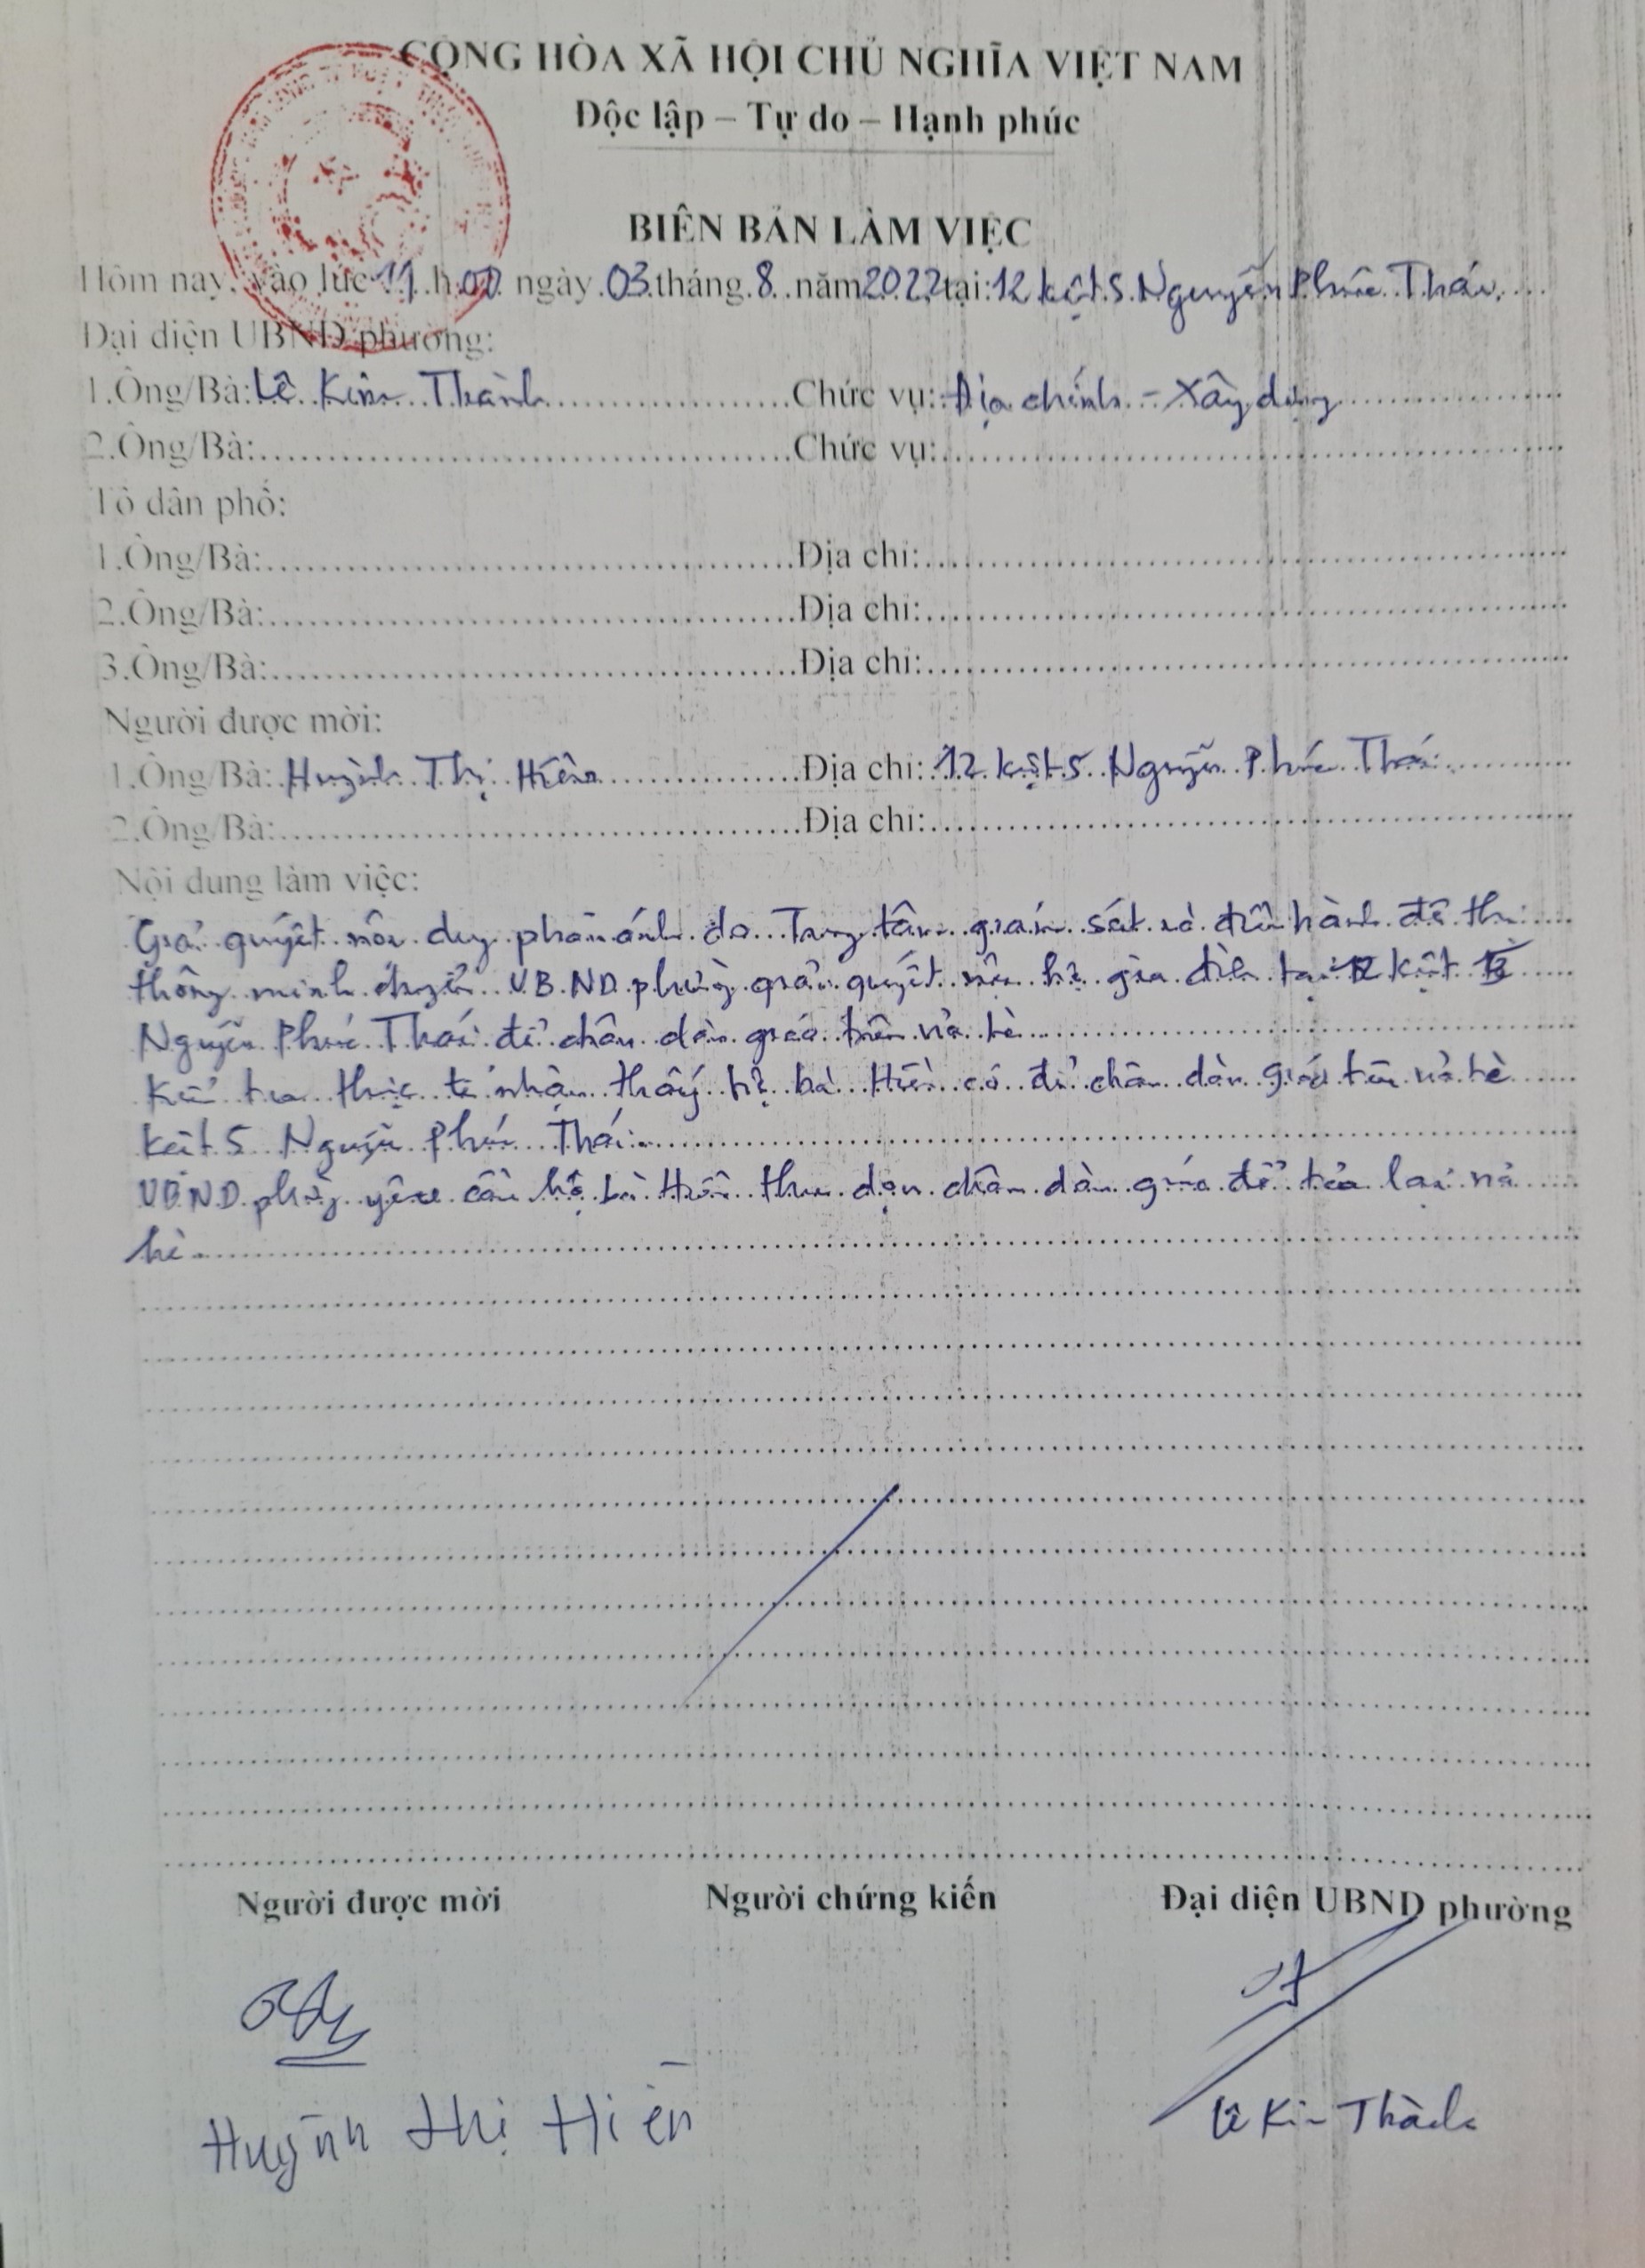 CỘNG HÒA XÃ HỘI CHỦ NGHĨA VIỆT NAM
Độc lập – Tự do – Hạnh phúc
BIÊN BẢN LÀM VIỆC
Hôm nay, vào lúc 11 h 00 ngày 03 tháng 8 năm 2022 tại: 12 kiệt 5 Nguyễn Phúc Thái
Đại diện UBND phường:
1.Ông/Bà: Lê Kim Thành Chức vụ: Địa chính - Xây dựng
2.Ông/Bà: Chức vụ:
Tổ dân phố:
1.Ông/Bà: Địa chỉ:
2.Ông/Bà: Địa chỉ:
3.Ông/Bà: Địa chỉ:
Người được mời:
1.Ông/Bà: Huỳnh Thị Hiền Địa chỉ: 12 kiệt 5 Nguyễn Phúc Thái
2.Ông/Bà: Địa chỉ:
Nội dung làm việc:
Giải quyết nội dung phản ánh do Trung tâm giám sát và điều hành đô thị
thông minh chuyển UBND phường giải quyết việc hộ gia đình tại 12 kiệt
Nguyễn Phúc Thái để chân dàn giáo trên vỉa hè
Kiểm tra thực tế nhận thấy hộ bà Hiền có để chân dàn giáo trên vỉa hè
kiệt 5 Nguyễn Phúc Thái.
UBND phường yêu cầu hộ bà Hiền thu dọn chân dàn giáo để trả lại vỉa
hè.
Người được mời Người chứng kiến Đại diện UBND phường
Huỳnh Thị Hiền Lê Kim Thành